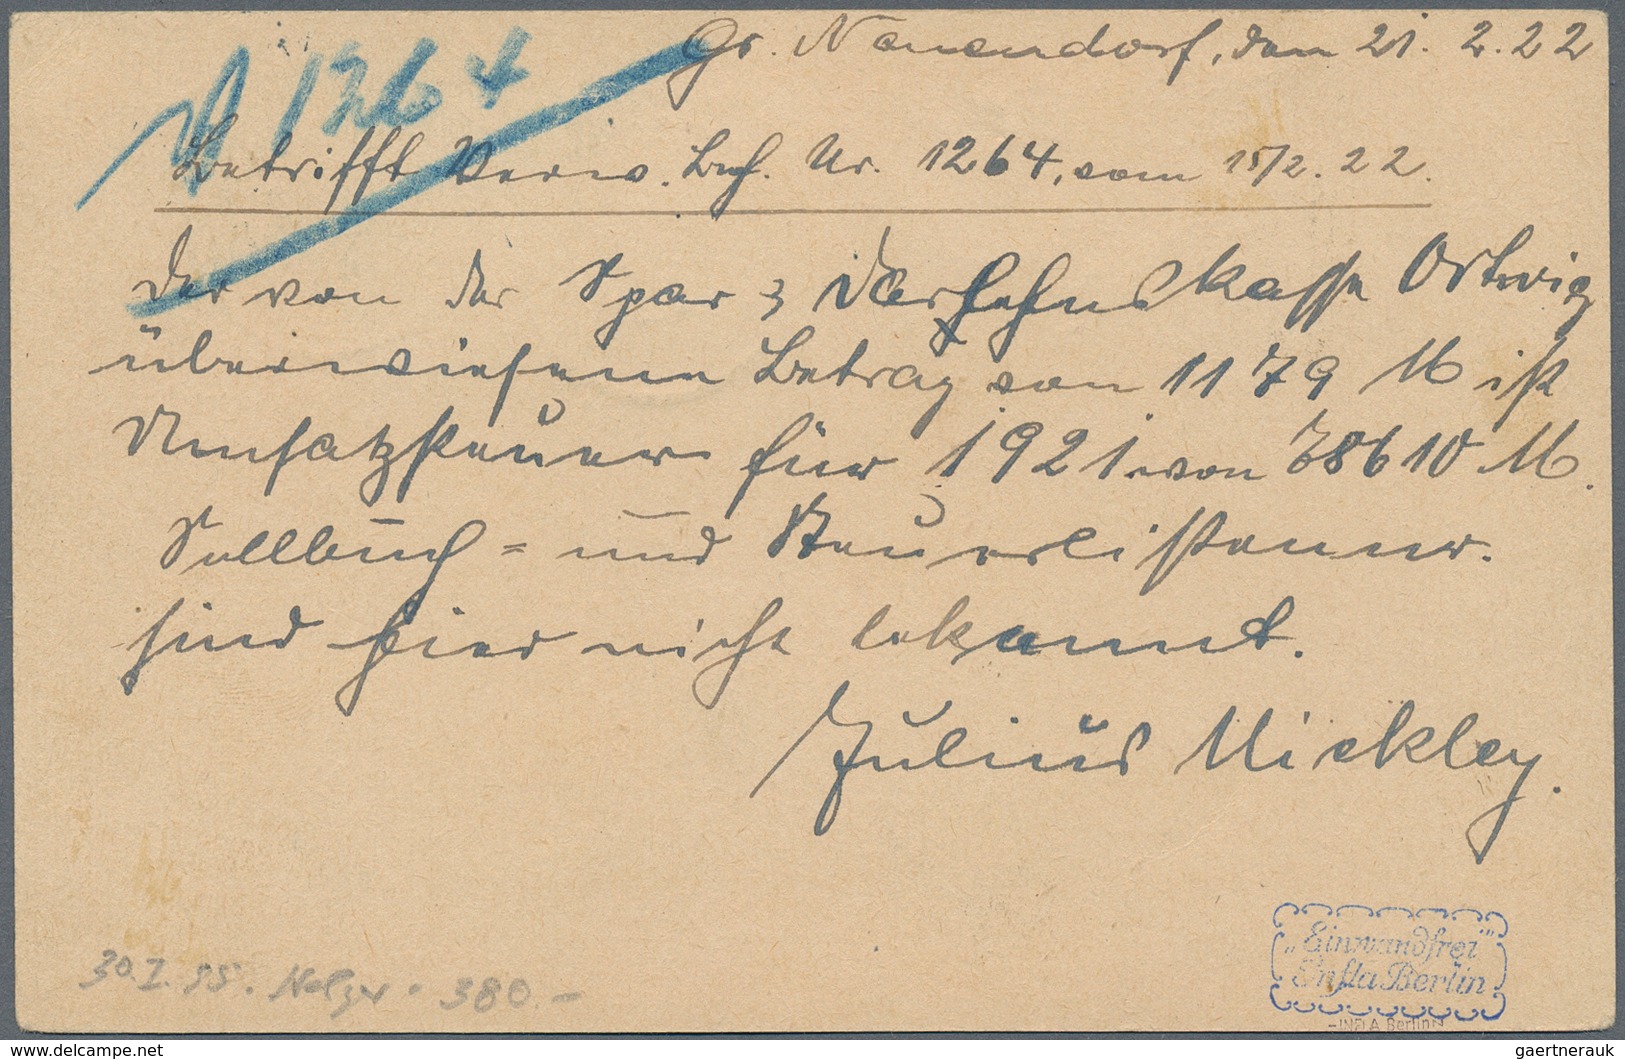 Gr. Nauendorf, den 21. 2. 22
1264
Betrifft Verw. Buch. Nr. 1264, vom 15/2. 22.
Der von der Spar & Darlehnskasse Ortwig
überwiesene Betrag von 1179 M ist
Umsatzsteuer für 1921 von 78610 M.
Sollbuch = und Steuerlistennr.
sind hier nicht bekannt.
Julius Mickley.
30.I.55. 380.-
„Einwandfrei”
Infla Berlin
-INFLA Berlin-
gaertnerauk